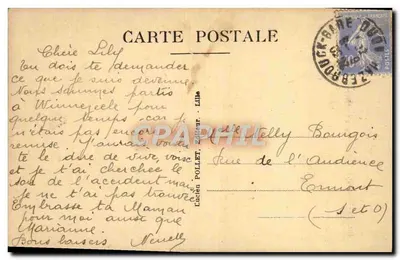 CARTE POSTALE
Chère Lily
Tu dois te demander
ce que je suis devenue
Nous sommes partis
à Winnezele pour
quelque temps car je
n'étais pas encore
remise. J'aurais voulu
te le dire de vive voix
et je t'ai cherchée le
soir de l'accident mais
je ne t'ai pas trouvée
Embrasse ta Maman
pour moi ainsi que
Marianne.
Bons baisers
Lucien POLLET, Editeur - Lille
HAZEBROUCK-GARE
NORD
Bourgois
Rue de l'Audience
Ermont
(S et O)
CPArama.com